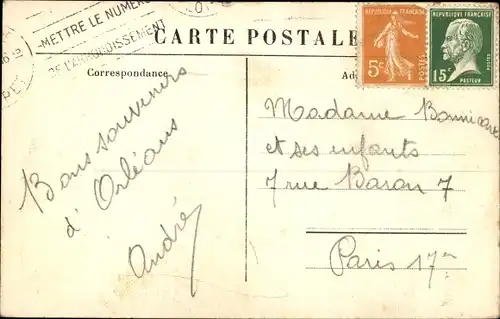 METTRE LE NUMÉRO
DE L'ARRONDISSEMENT
CARTE POSTALE
RÉPUBLIQUE FRANÇAISE
5c
POSTES
RÉPUBLIQUE FRANÇAISE
15c
PASTEUR
POSTES
Correspondance
Bons souvenirs
d'Orléans
André
Madame
et ses enfants
7 rue Baron 7
Paris 17e